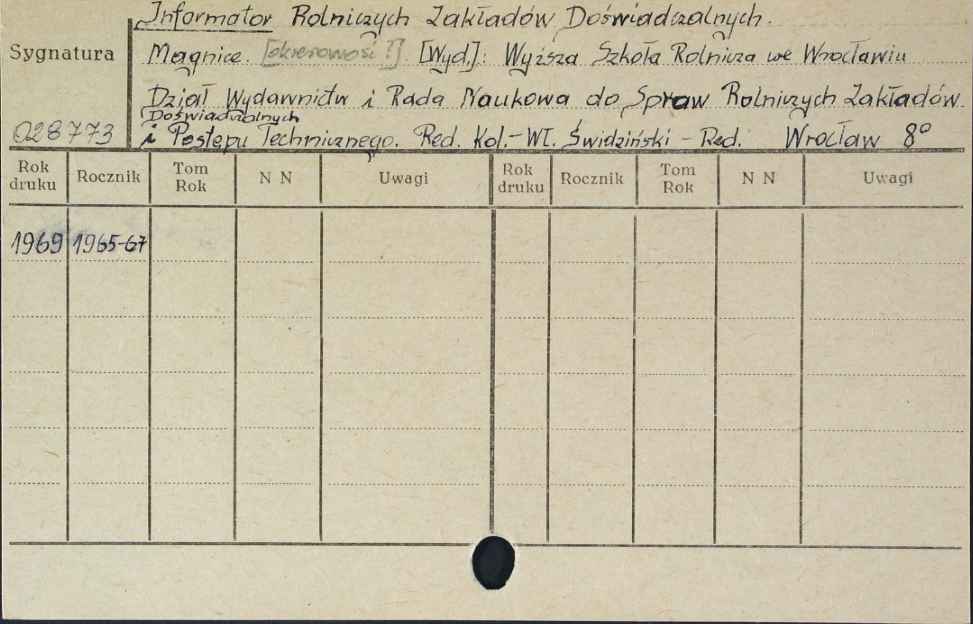 Informator Rolniczych Zakładów Doświadczalnych.
Sygnatura
Magnice. [okresowość?] [Wyd.]: Wyższa Szkoła Rolnicza we Wrocławiu
Dział Wydawnictw i Rada Naukowa do Spraw Rolniczych Zakładów
Doświadczalnych
028773
i Postępu Technicznego. Red. Kol.- Wł. Świdziński - Red. Wrocław 8°
Rok druku Rocznik Tom Rok N N Uwagi Rok druku Rocznik Tom Rok N N Uwagi
1969 1965-67